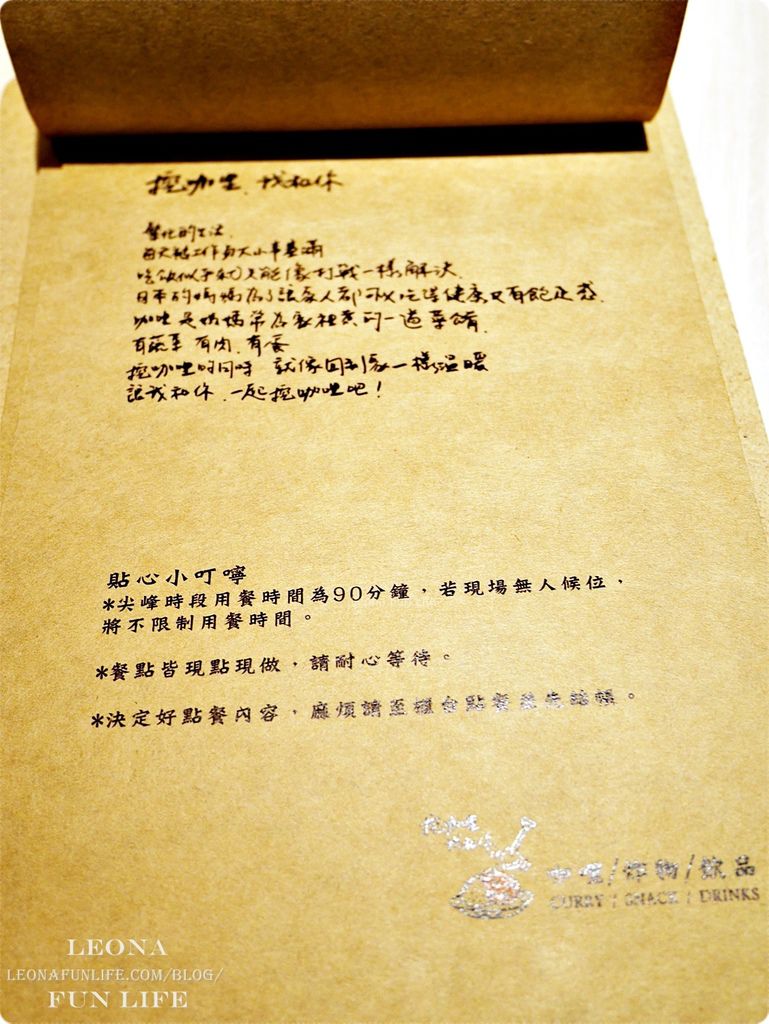 挖咖哩.我和你
每天被工作與大小事塞滿
吃飯似乎都只能像打戰一樣解決.
日本的媽媽為了讓家人都可以吃得健康又有飽足感.
咖哩是媽媽常為家裡煮的一道菜餚.
有蔬菜 有肉.有愛
挖咖哩的同時 就像回到家一樣溫暖
讓我和你.一起挖咖哩吧!
貼心小叮嚀
*尖峰時段用餐時間為90分鐘，若現場無人候位，
將不限制用餐時間。
*餐點皆現點現做，請耐心等待。
*決定好點餐內容，麻煩請至櫃台點餐並先結帳。
挖咖哩
咖哩/炸物/飲品
CURRY / SNACK / DRINKS
LEONA
LEONAFUNLIFE.COM/BLOG/
FUN LIFE